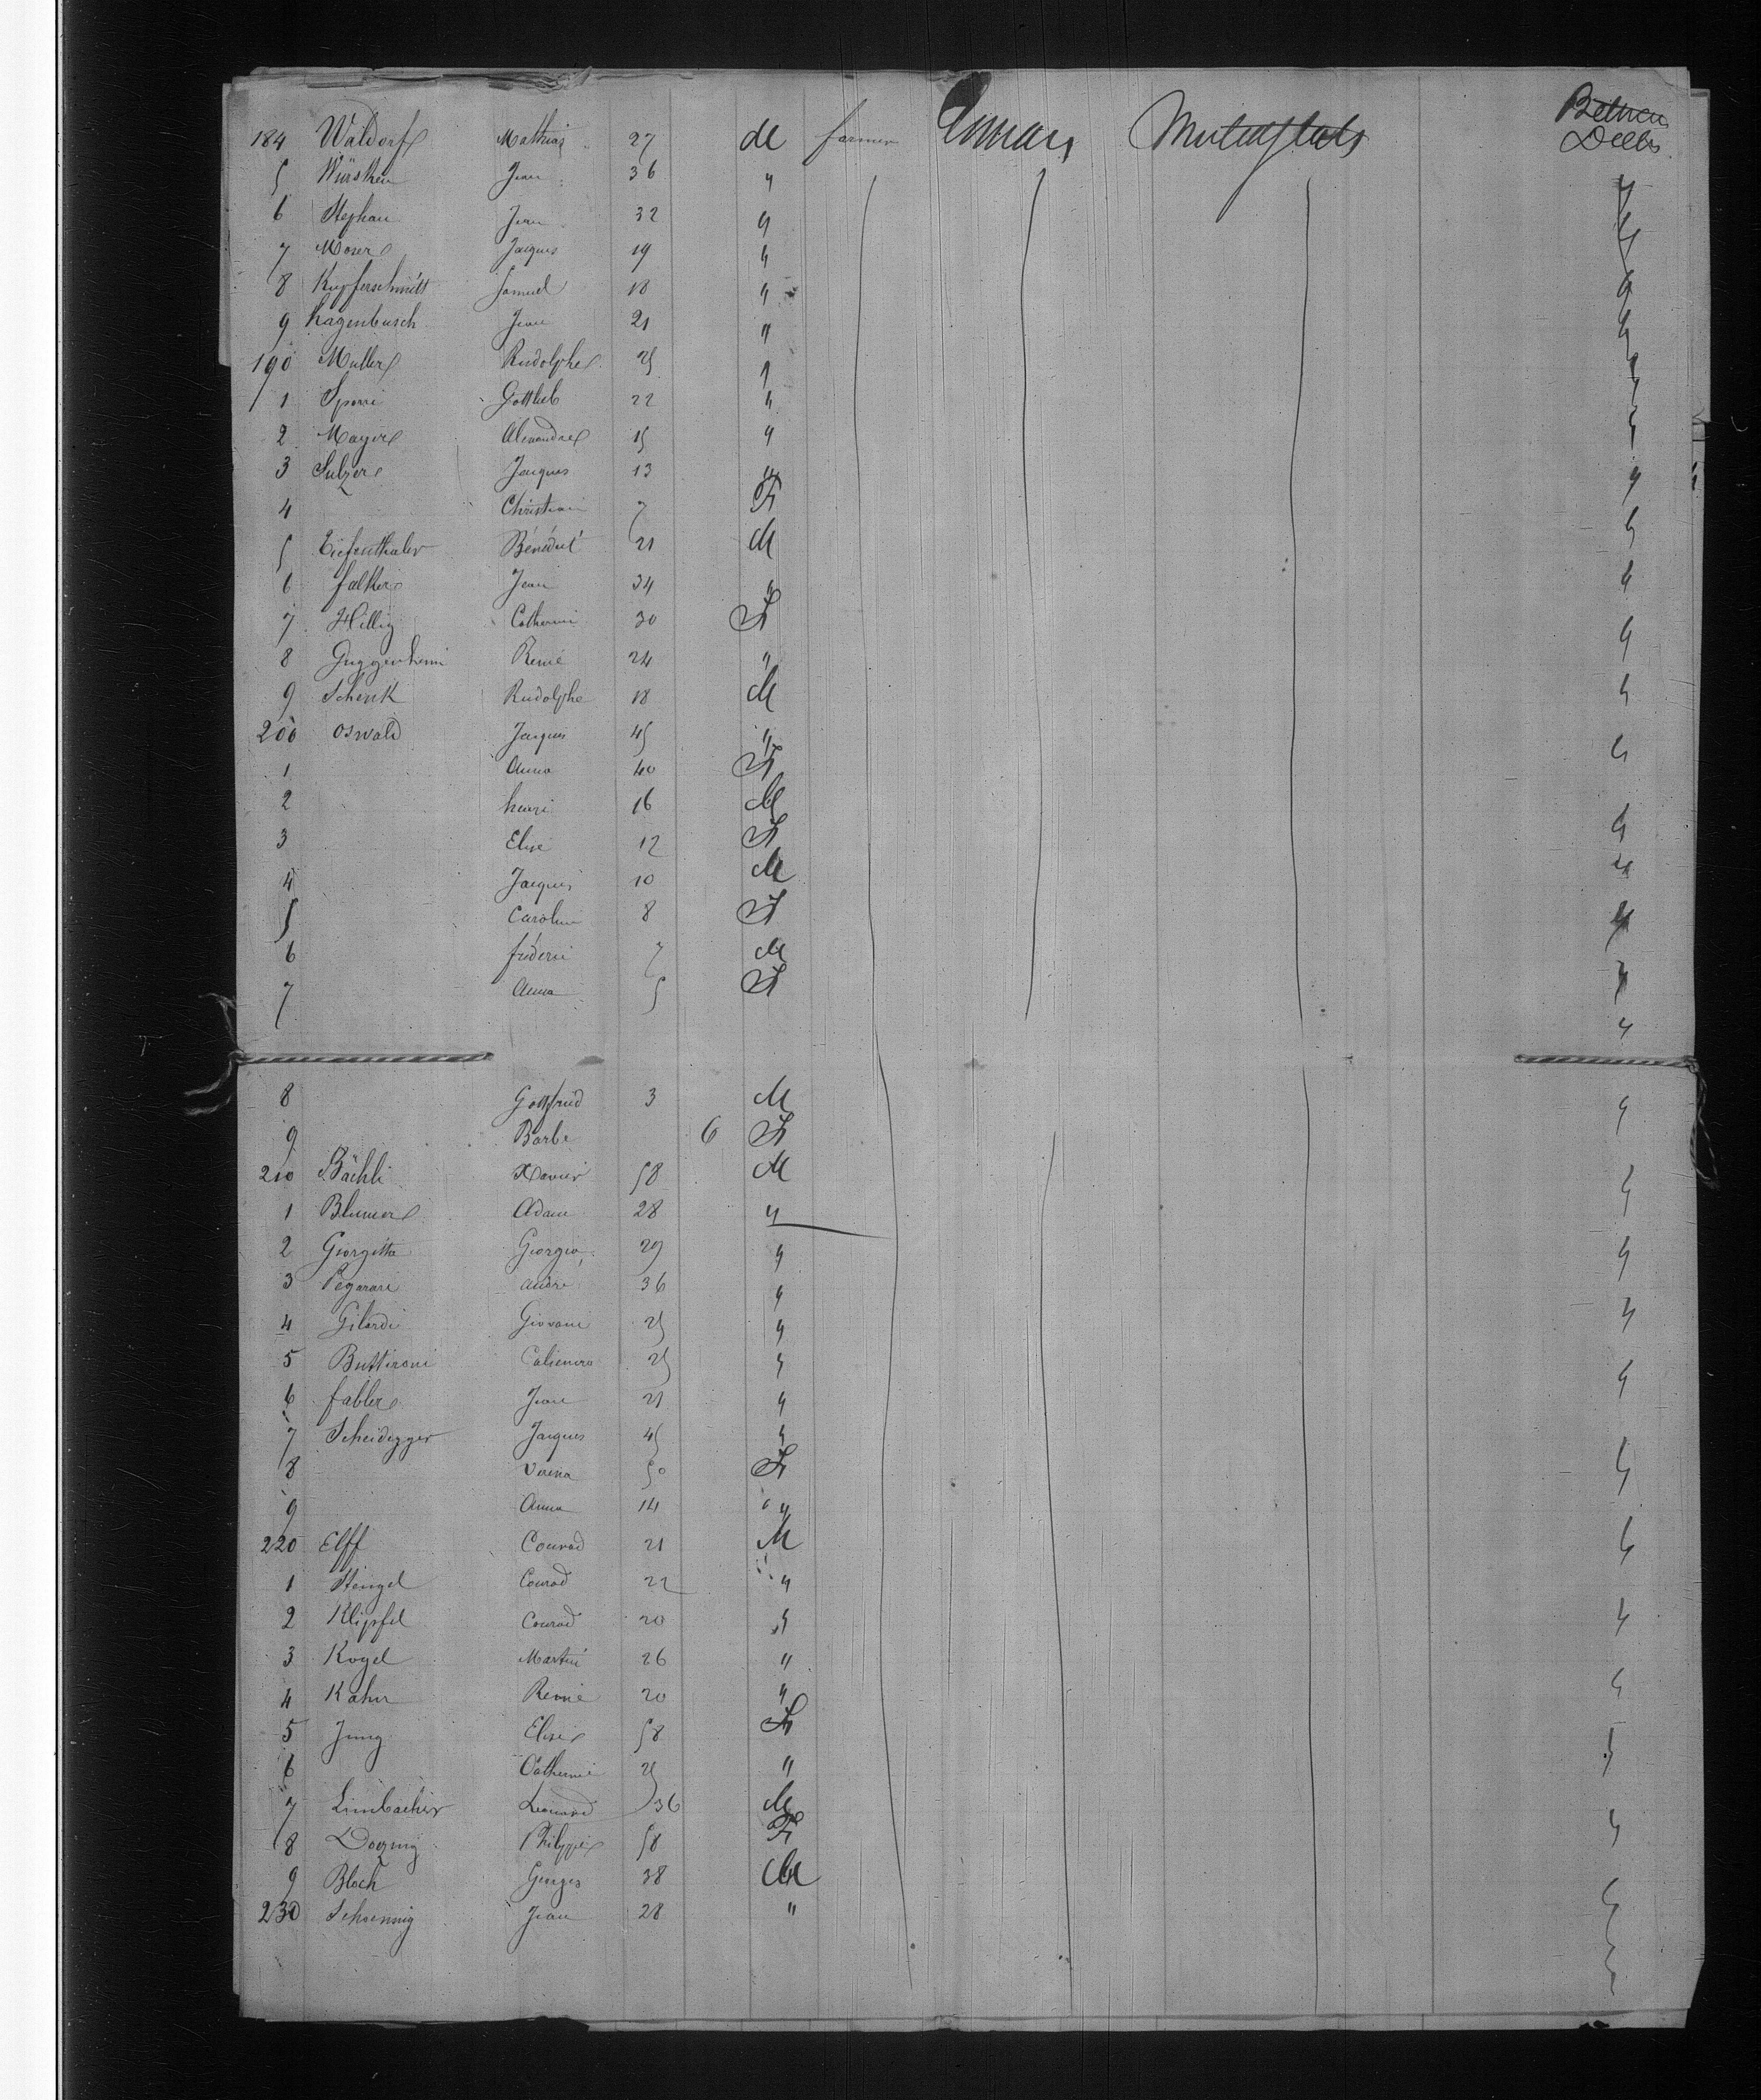 184 Waldorf Mathias 27 M farmer United States Between Decks
5 Würsthen Jean 36 "
6 Stephan Jean 32 "
7 Moser Jacques 19 "
8 Kupferschmitt Samuel 18 "
9 hagenbusch Jean 21 "
190 Muller Rudolphe 25 "
1 Gottlieb 22 "
2 Mayer Alexandre 15 "
3 Sulzer Jacques 13 "
4 Christian 7 F
5 Eiefenthaler Bénédict 21 M
6 Jean 34 "
7 Hillig Catherine 30 F
8 Guggenheim 24 "
9 Schenk Rudolphe 18 M
200 Oswald Jacques 45 "
1 Anna 40 F
2 henri 16 M
3 Elise 12 F
4 Jacques 10 M
5 Caroline 8 F
6 frédéric 7 M
7 Anna 5 F
8 Gottfried 3 M
9 Barbe 6 F
210 Bächli Xavier 58 M
1 Blumer Adam 28 "
2 Giorgetta Giorgio 29 "
3 Pegorari André 36 "
4 Gilardi Giovani 25 "
5 Buttironi 25 "
6 fabler Jean 21 "
7 Scheidegger Jacques 45 "
8 Verena 50 F
9 Anna 14 "
220 Elff Conrad 21 M
1 Stengel Conrad 22 "
2 Klipfel Conrad 20 "
3 Kogel Martin 26 "
4 Kahn 20 "
5 Jung Elise 58 F
6 Catherine 25 "
7 Limbacher Leonard 36 M
8 Philippe 58 F
9 Bloch Georges 38 M
230 Schoennig Jean 28 "